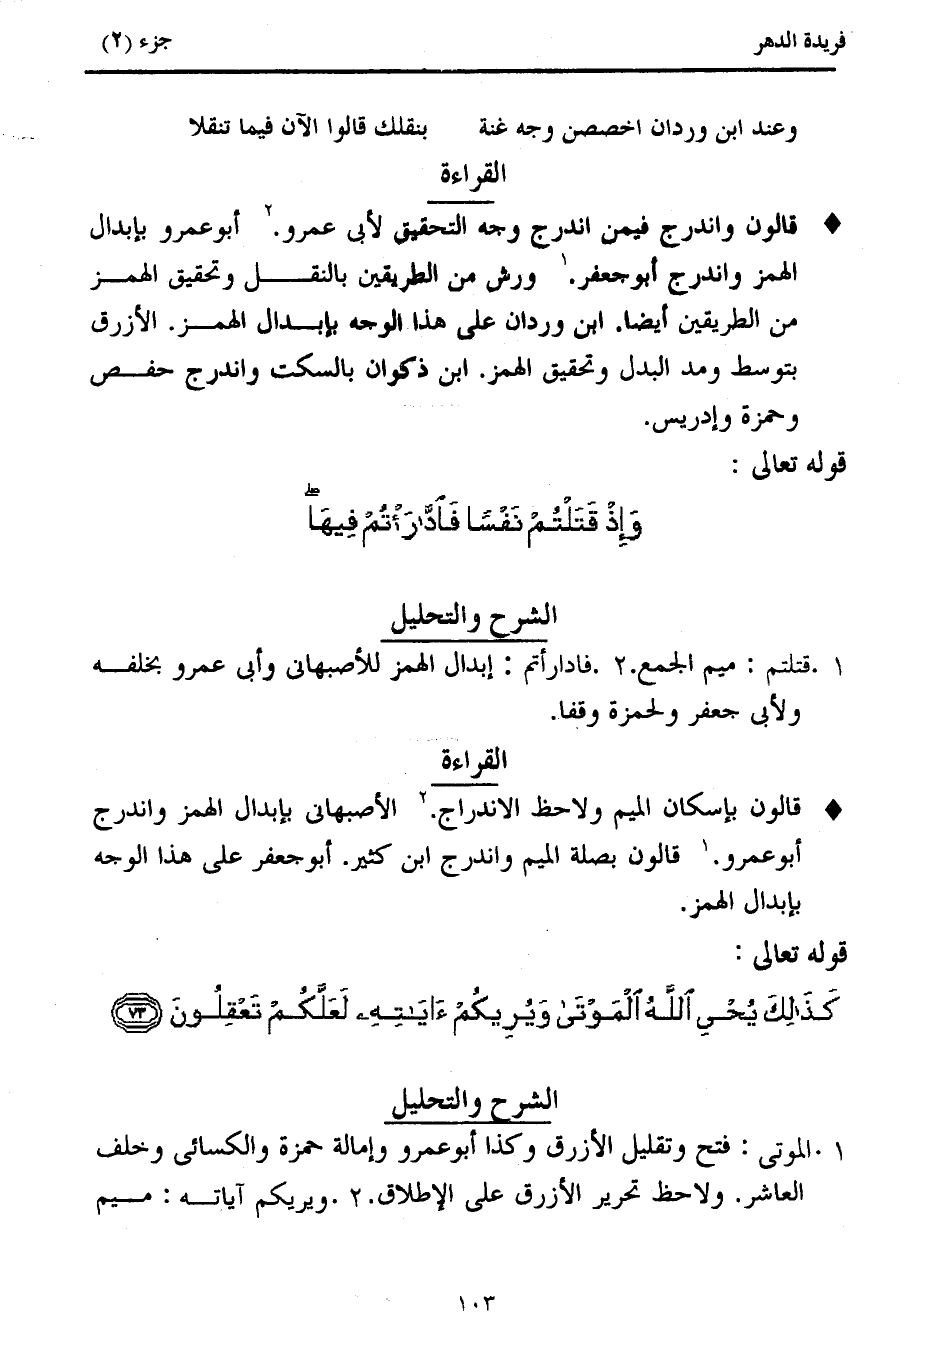 فريدة الدهر جزء (٢)
وعند ابن وردان اخصصن وجه غنة بنقلك قالوا الآن فيما تنقلا
القراءة
♦ قالون واندرج فيمن اندرج وجه التحقيق لأبى عمرو.٢ أبوعمرو بإبدال
الهمز واندرج أبوجعفر.١ ورش من الطريقين بالنقـــل وتحقيق الهمـز
من الطريقين أيضا. ابن وردان على هذا الوجه بإبـدال الهمـز. الأزرق
بتوسط ومد البدل وتحقيق الهمز. ابن ذكوان بالسكت واندرج حفـص
وحمزة وإدريس.
قوله تعالى :
وَإِذْ قَتَلْتُمْ نَفْسًا فَٱدَّٰرَٰءْتُمْ فِيهَاۖ
الشرح والتحليل
١ .قتلتم : ميم الجمع.٢ .فادارأتم : إبدال الهمز للأصبهانى وأبى عمرو بخلفـه
ولأبى جعفر ولحمزة وقفا.
القراءة
♦ قالون بإسكان الميم ولاحظ الاندراج.٢ الأصبهانى بإبدال الهمز واندرج
أبوعمرو.١ قالون بصلة الميم واندرج ابن كثير. أبوجعفر على هذا الوجه
بإبدال الهمز.
قوله تعالى :
كَذَٰلِكَ يُحْىِ ٱللَّهُ ٱلْمَوْتَىٰ وَيُرِيكُمْ ءَايَـٰتِهِۦ لَعَلَّكُمْ تَعْقِلُونَ ٧٣
الشرح والتحليل
١ .الموتى : فتح وتقليل الأزرق وكذا أبوعمرو وإمالة حمزة والكسائى وخلف
العاشر. ولاحظ تحرير الأزرق على الإطلاق.٢ .ويريكم آياتـه : مـيم
١٠٣